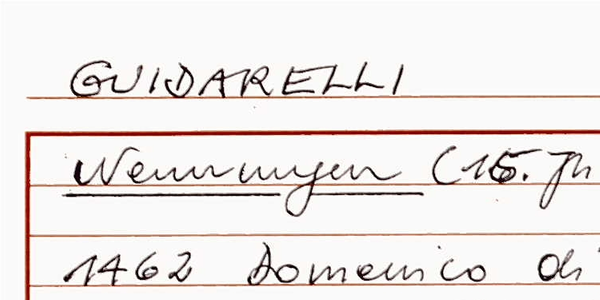 GUIDARELLI
Nennungen (15. Jh
1462 Domenico di